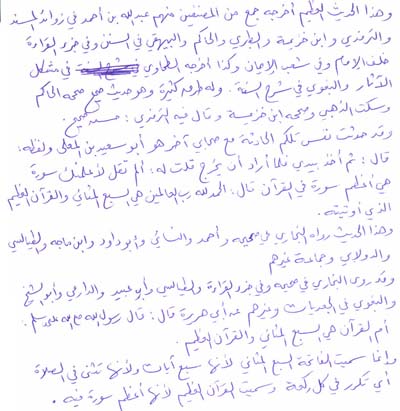 وهذا الحديث العظيم أخرجه جمع من المصنفين منهم عبد الله بن أحمد في زوائد المسند
والترمذي وابن خزيمة والطبري والحاكم والبيهقي في السنن وفي جزء القراءة
خلف الإمام وفي شعب الإيمان وكذا أخرجه الطحاوي في مشكل
الآثار والبغوي في شرح السنة. وله طرق كثيرة وهو حديث صحيح صححه الحاكم
وسكت الذهبي وصححه ابن خزيمة وقال فيه الترمذي: حسن صحيح.
وقد حدثت نفس تلكم الحادثة مع صحابي آخر هو أبو سعيد بن المعلى ولفظه:
قال: ثم أخذ بيدي فلما أراد أن يخرج قلت له: ألم تقل لأعلمنك سورة
هي أعظم سورة في القرآن قال: الحمد لله رب العالمين هي السبع المثاني والقرآن العظيم
الذي أوتيته.
وهذا الحديث رواه البخاري في صحيحه وأحمد والنسائي وأبو داود وابن ماجه والطيالسي
والدولابي وجماعة غيرهم
وقد روى البخاري في صحيحه وفي جزء القراءة والطيالسي وأبو عبيد والدارمي وأبو الشيخ
والبغوي في الجعديات وغيرهم عن أبي هريرة قال: قال رسول الله صلى الله عليه وسلم:
أم القرآن هي السبع المثاني والقرآن العظيم.
وإنما سميت الفاتحة السبع المثاني لأنها سبع آيات ولأنها تثنى في الصلاة
أي تكرر في كل ركعة وسميت القرآن العظيم لأنها أعظم سورة فيه.